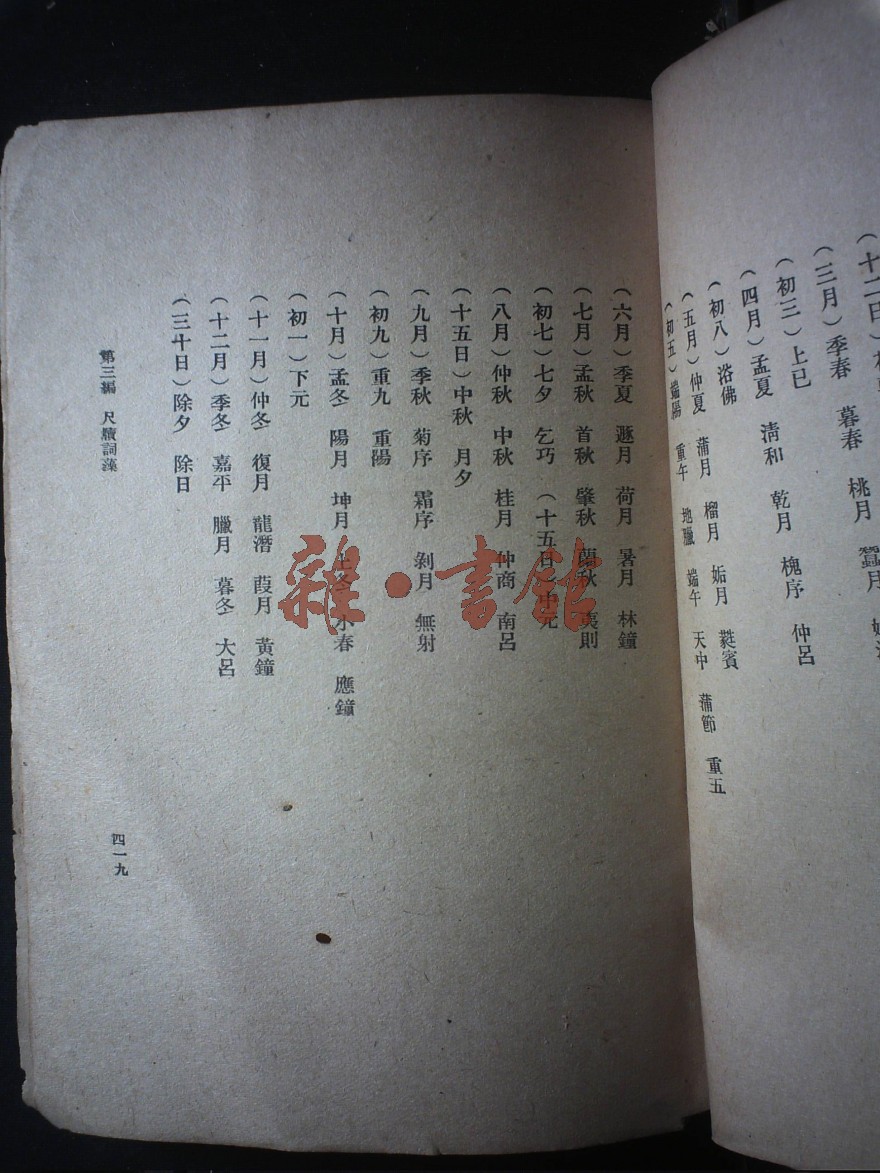 （三月）季春　暮春　桃月　蠶月
（初三）上巳
（四月）孟夏　清和　乾月　槐序　仲呂
（初八）浴佛
（五月）仲夏　蒲月　榴月　姤月　蕤賓
（初五）端陽　重午　地臘　端午　天中　蒲節　重五
（六月）季夏　遯月　荷月　暑月　林鐘
（七月）孟秋　首秋　肇秋　蘭秋　夷則
（初七）七夕　乞巧　（十五日）中元
（八月）仲秋　中秋　桂月　仲商　南呂
（十五日）中秋　月夕
（九月）季秋　菊序　霜序　剝月　無射
（初九）重九　重陽
（十月）孟冬　陽月　坤月　上冬　小春　應鐘
（初一）下元
（十一月）仲冬　復月　龍潛　葭月　黃鐘
（十二月）季冬　嘉平　臘月　暮冬　大呂
（三十日）除夕　除日
第三編　尺牘詞藻
四一九
雜·書館